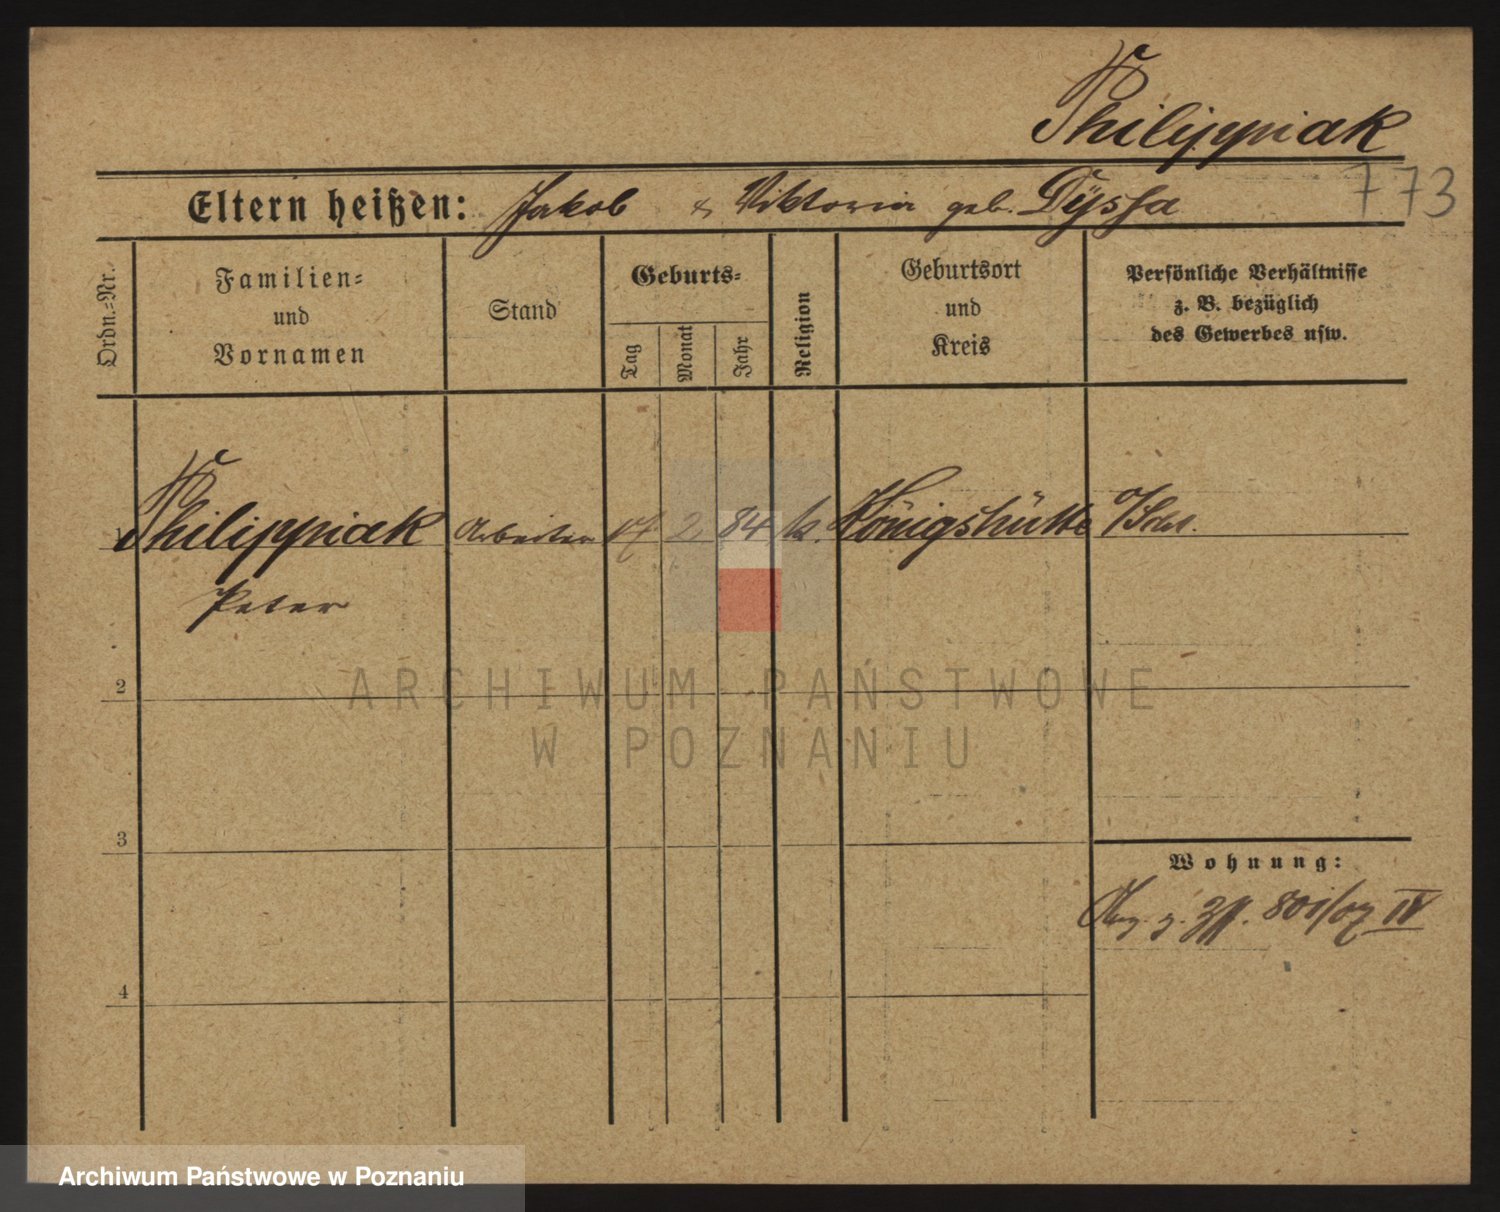 Philippiak
773
Eltern heißen: Jakob & Viktoria geb. Dyssa
Ordn.-Nr.
Familien-
und
Vornamen
Stand
Geburts-
Tag
Monat
Jahr
Religion
Geburtsort
und
Kreis
Persönliche Verhältnisse
z. B. bezüglich
des Gewerbes usw.
1 Philippiak Arbeiter 17 2 84 k. Königshütte O/Schl.
Peter
2
3
4
Wohnung:
z. 801/07 IV
ARCHIWUM PAŃSTWOWE
W POZNANIU
Archiwum Państwowe w Poznaniu